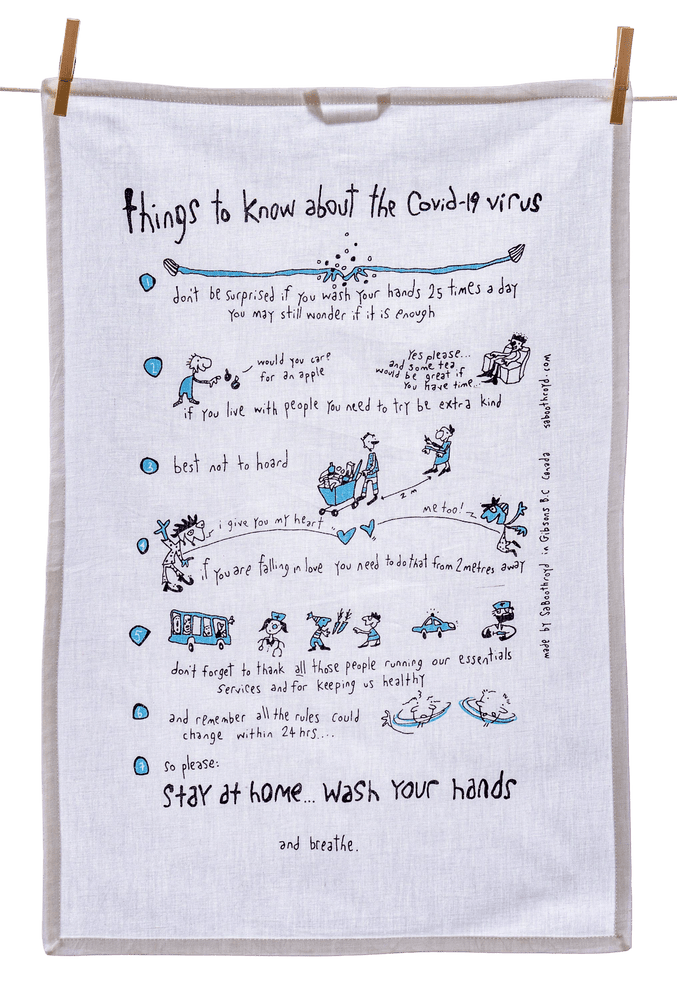 things to know about the Covid-19 virus
1
don't be surprised if you wash your hands 25 times a day
you may still wonder if it is enough
2
would you care
for an apple
Yes please...
and some tea
would be great if
you have time...
if you live with people you need to try be extra kind
3
best not to hoard
2 m
4
i give you my heart
me too!
if you are falling in love you need to do that from 2 metres away
5
don't forget to thank all those people running our essentials
services and for keeping us healthy
6
and remember all the rules could
change within 24 hrs....
7
so please:
Stay at home... Wash Your hands
and breathe.
made by SaBoothroyd in Gibsons B.C Canada saboothroyd.com